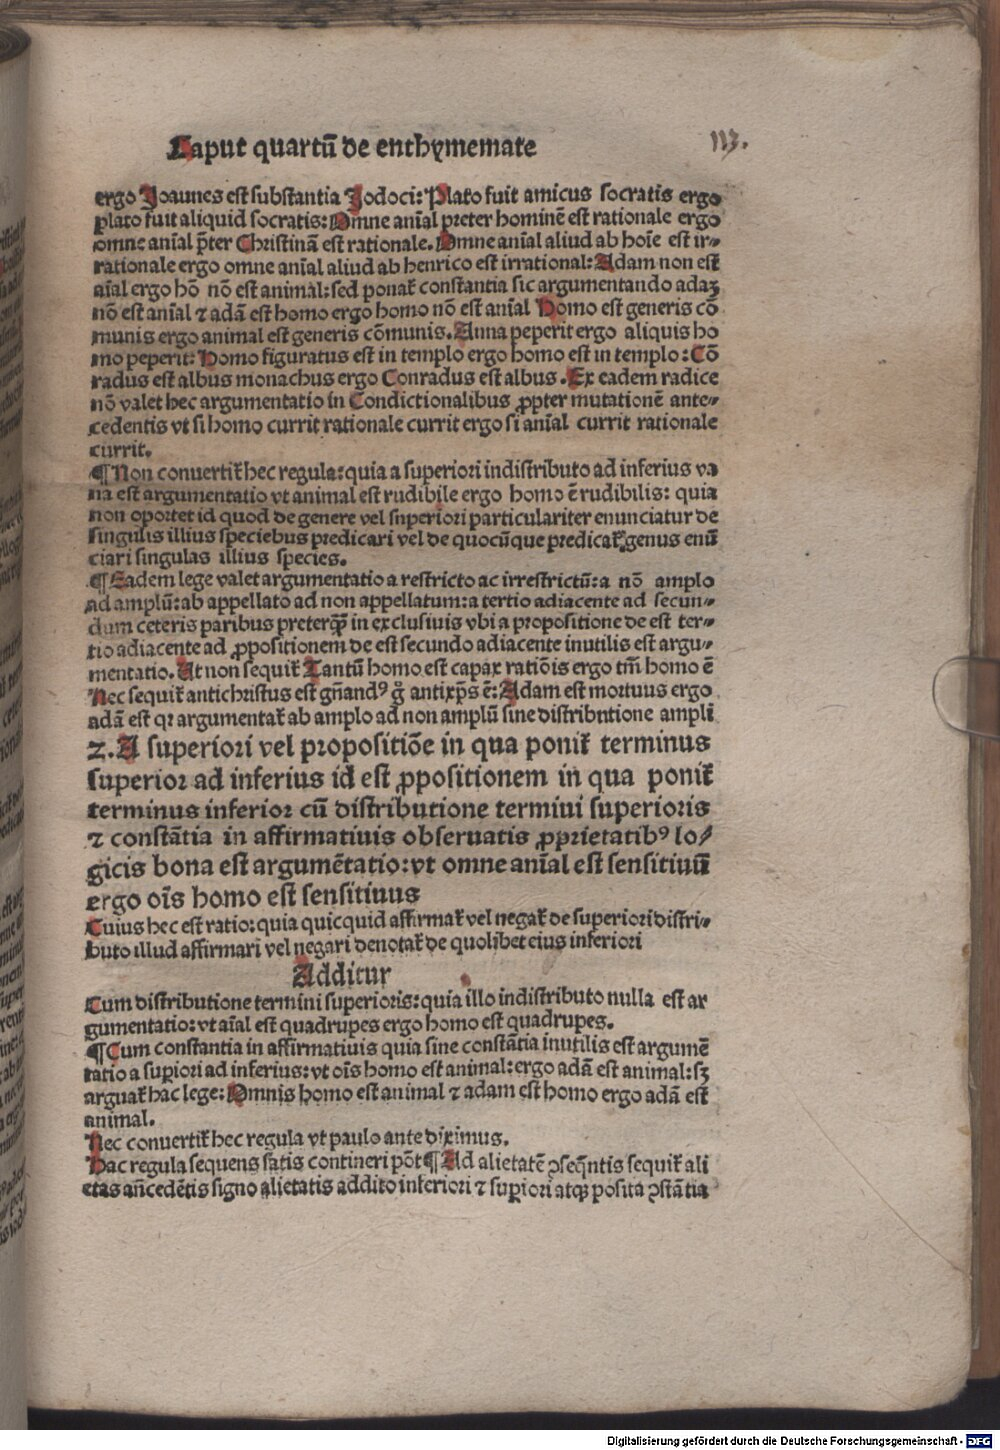 Caput quartū de enthymemate
113.
ergo Joannes est substantia Jodoci: Plato fuit amicus socratis ergo
plato fuit aliquid socratis: Omne anīal preter hominē est rationale ergo
omne anīal p̄ter Christinā est rationale. Omne anīal aliud ab hoīe est ir⸗
rationale ergo omne anīal aliud ab henrico est irrational: Adam non est
aīal ergo hō nō est animal: sed ponať constantia sic argumentando adaꝫ
nō est anīal ⁊ adā est homo ergo homo nō est anīal Homo est generis cō
munis ergo animal est generis cōmunis. Anna peperit ergo aliquis ho
mo peperit: Homo figuratus est in templo ergo homo est in templo: Cō
radus est albus monachus ergo Conradus est albus. Ex eadem radice
nō valet hec argumentatio in Condictionalibus ꝓpter mutationē ante⸗
cedentis vt si homo currit rationale currit ergo si anīal currit rationale
currit.
¶ Non convertiť hec regula: quia a superiori indistributo ad inferius va
na est argumentatio vt animal est rudibile ergo homo ē rudibilis: quia
non oportet id quod de genere vel superiori particulariter enunciatur de
singulis illius speciebus predicari vel de quocūque predicať genus enū
ciari singulas illius species.
¶ Eadem lege valet argumentatio a restricto ac irrestrictū: a nō amplo
ad amplū: ab appellato ad non appellatum: a tertio adiacente ad secun⸗
dum ceteris paribus preterꝙ̄ in exclusiuis vbi a propositione de est ter⸗
tio adiacente ad ꝓpositionem de est secundo adiacente inutilis est argu⸗
mentatio. At non sequiť Tantū homo est capax ratiōis ergo tm̄ homo ē
Nec sequiť antichristus est gn̄andꝰ g̊ antixp̄s ē: Adam est mortuus ergo
adā est qꝛ argumentať ab amplo ad non amplū sine distribntione ampli
2. A superiori vel propositiōe in qua poniť terminus
superior ad inferius id est ꝓpositionem in qua poniť
terminus inferior cū distributione termiui superioris
⁊ constātia in affirmatiuis obseruatis ꝓprietatibꝰ lo⸗
gicis bona est argumētatio: vt omne anīal est sensitiuū
ergo oīs homo est sensitiuus
Cuius hec est ratio: quia quicquid affirmať vel negať de superiori distri⸗
buto illud affirmari vel negari denotať de quolibet eius inferiori
Additur
Cum distributione termini superioris: quia illo indistributo nulla est ar
gumentatio: vt aīal est quadrupes ergo homo est quadrupes.
¶ Cum constantia in affirmatiuis quia sine constātia inutilis est argumē
tatio a suꝑiori ad inferius: vt oīs homo est animal: ergo adā est animal: sꝫ
arguať hac lege: Omnis homo est animal ⁊ adam est homo ergo adā est
animal.
Nec convertiť hec regula vt paulo ante diximus.
Hac regula sequens satis contineri pōt ¶ Ad alietatē ꝯseq̄ntis sequiť ali
etas an̄cedētis signo alietatis addito inferiori ⁊ suꝑiori atqꝫ posita ꝯstātia
Digitalisierung gefördert durch die Deutsche Forschungsgemeinschaft - DFG